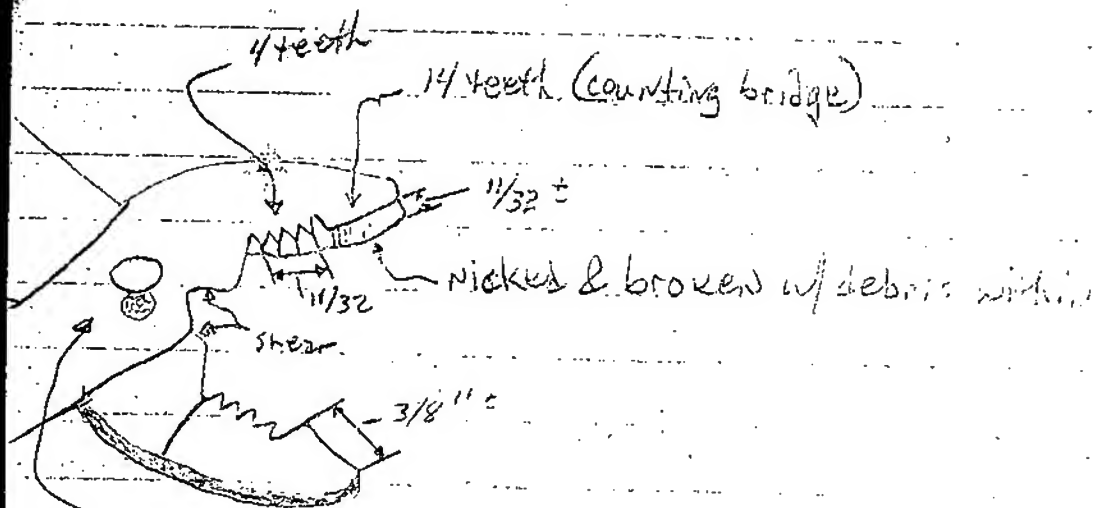 4 teeth
14 teeth (counting bridge)
11/32 ±
11/32
nicked & broken w/ debris within
shear
3/8" ±